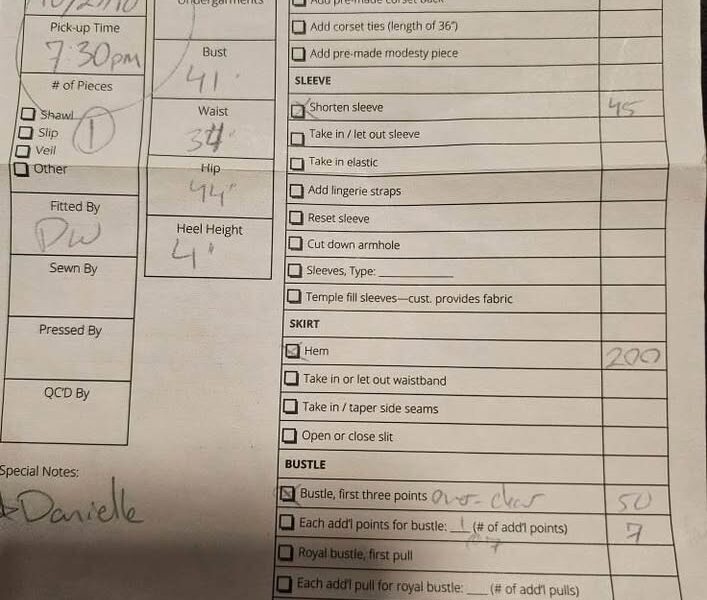 Pick-up Time
7:30pm
# of Pieces
Shawl
Slip
Veil
Other
1
Fitted By
DW
Sewn By
Pressed By
QC'D By
Special Notes:
Danielle
Undergarments
Bust
41"
Waist
34"
Hip
44"
Heel Height
4"
Add pre-made corset back
Add corset ties (length of 36")
Add pre-made modesty piece
SLEEVE
Shorten sleeve 45
Take in / let out sleeve
Take in elastic
Add lingerie straps
Reset sleeve
Cut down armhole
Sleeves, Type: ____________
Temple fill sleeves—cust. provides fabric
SKIRT
Hem 200
Take in or let out waistband
Take in / taper side seams
Open or close slit
BUSTLE
Bustle, first three points over- 50
Each add'l points for bustle: 1 (# of add'l points) 7
Royal bustle, first pull
Each add'l pull for royal bustle: ___ (# of add'l pulls)